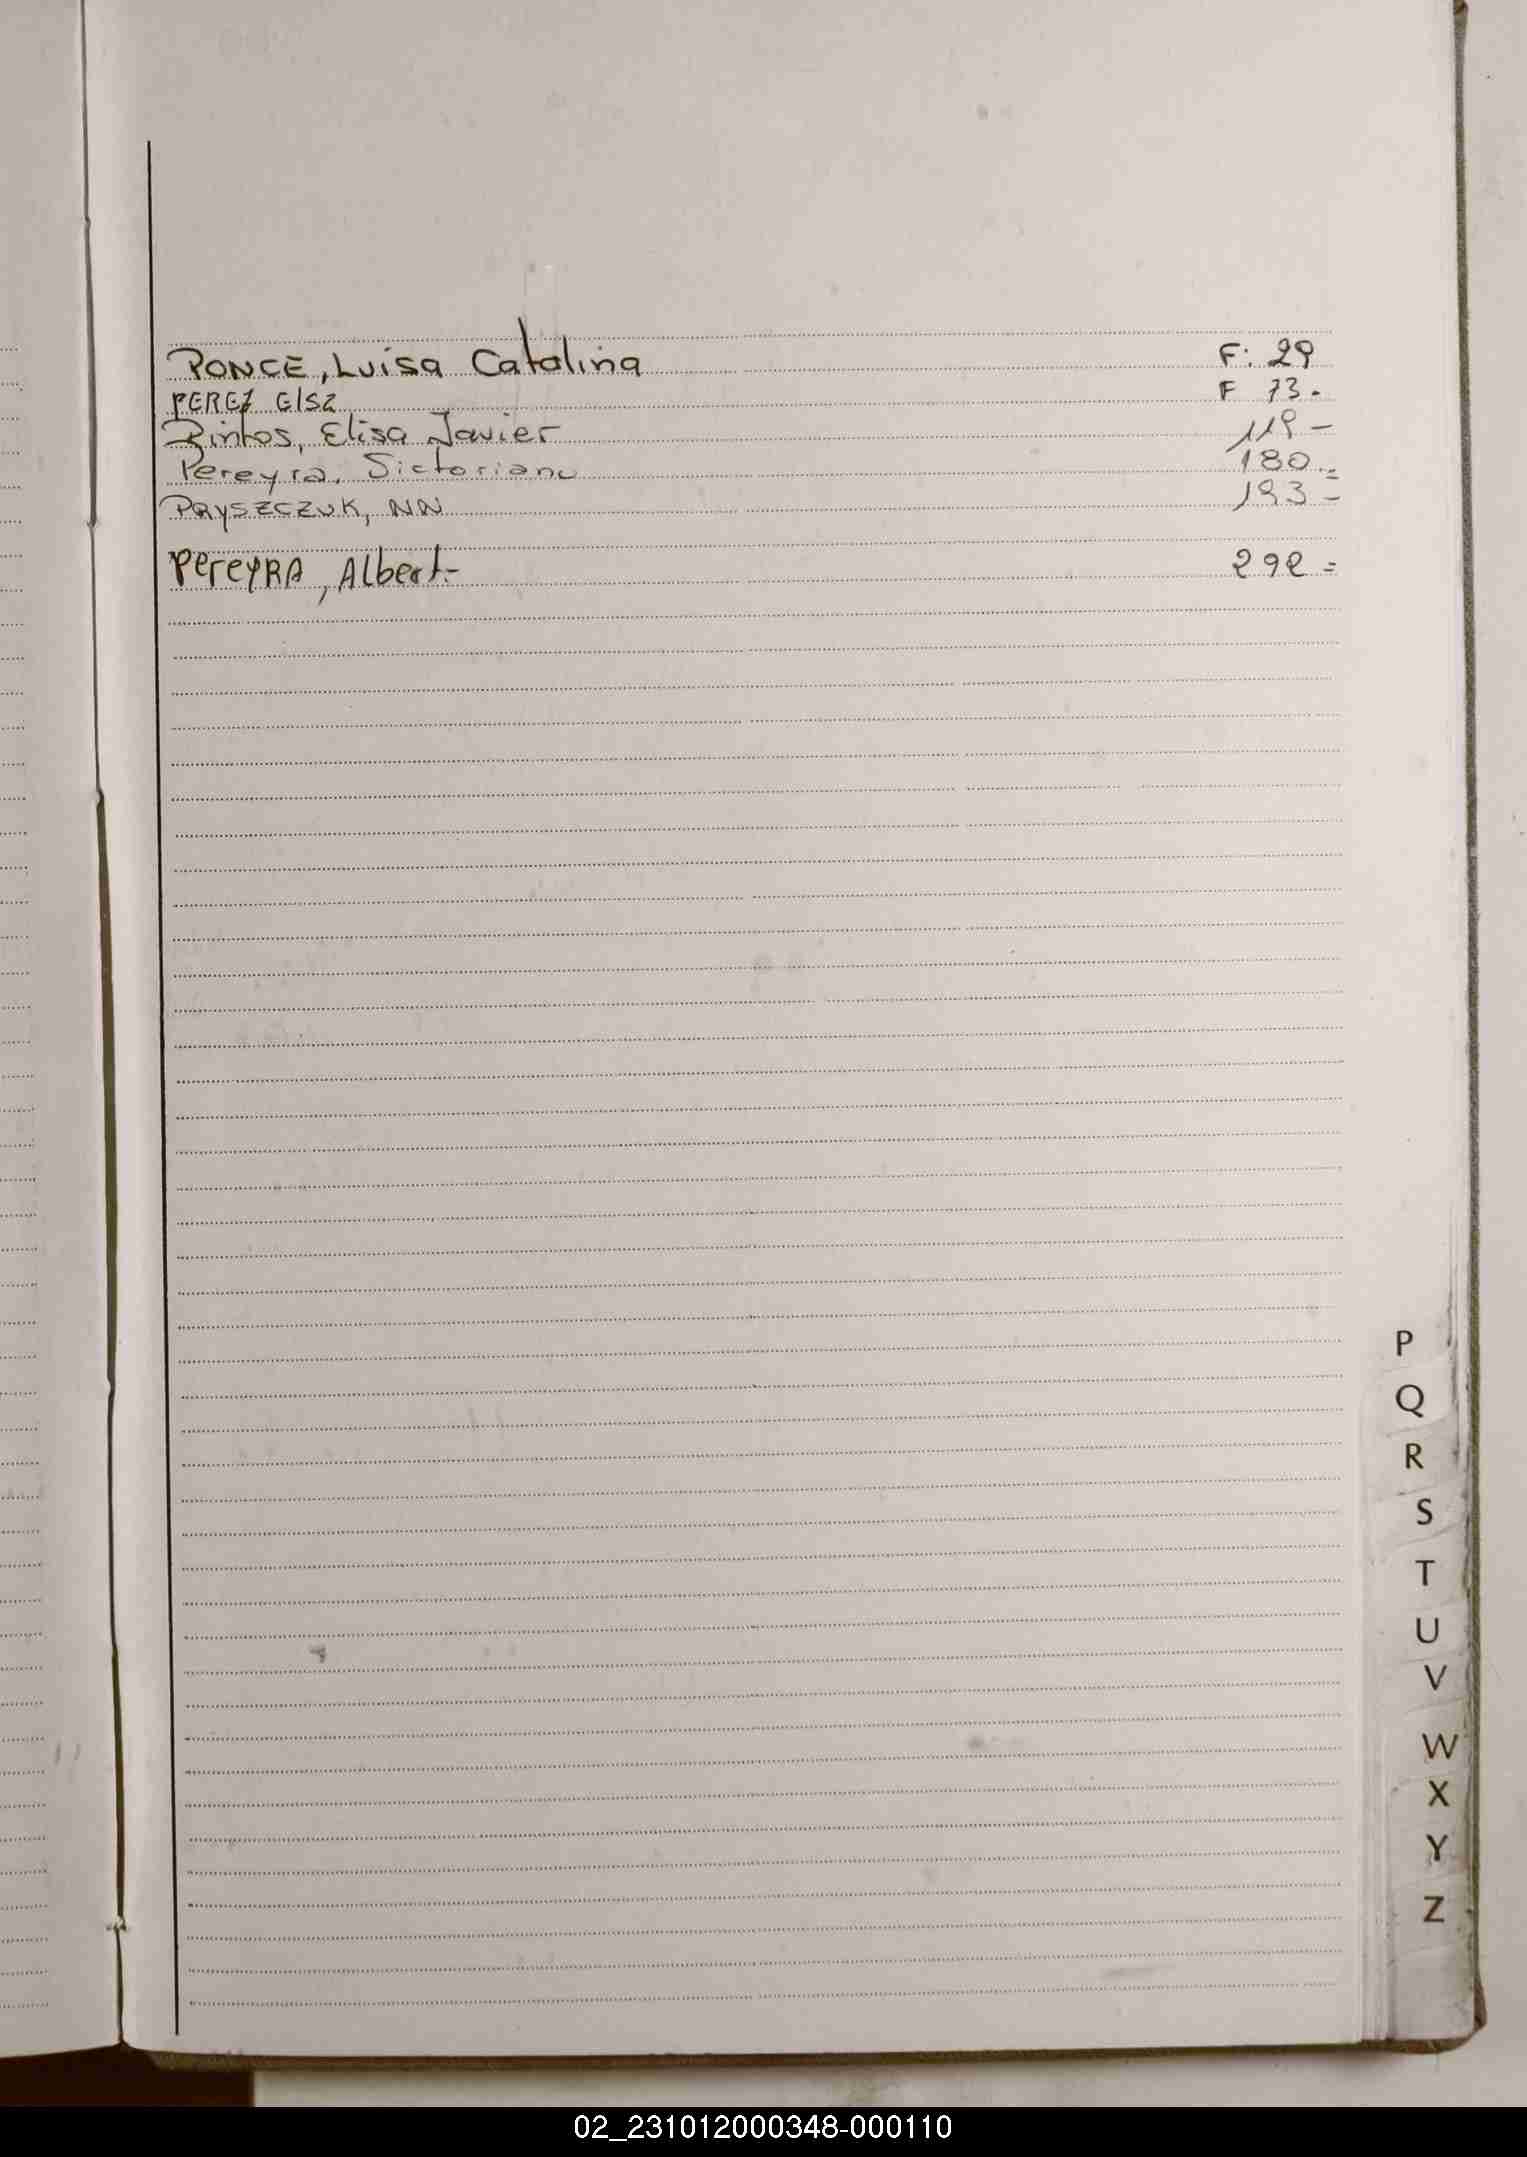 PONCE, Luisa Catalina F: 29
PEREZ Elsa F 73.
Pintos, Elisa Javier 119 -
Pereyra, Sictoriano 180 =
PRYSZCZUK, NN 193 =
PereyRA, Albert- 292 =
P
Q
R
S
T
U
V
W
X
Y
Z
02_231012000348-000110